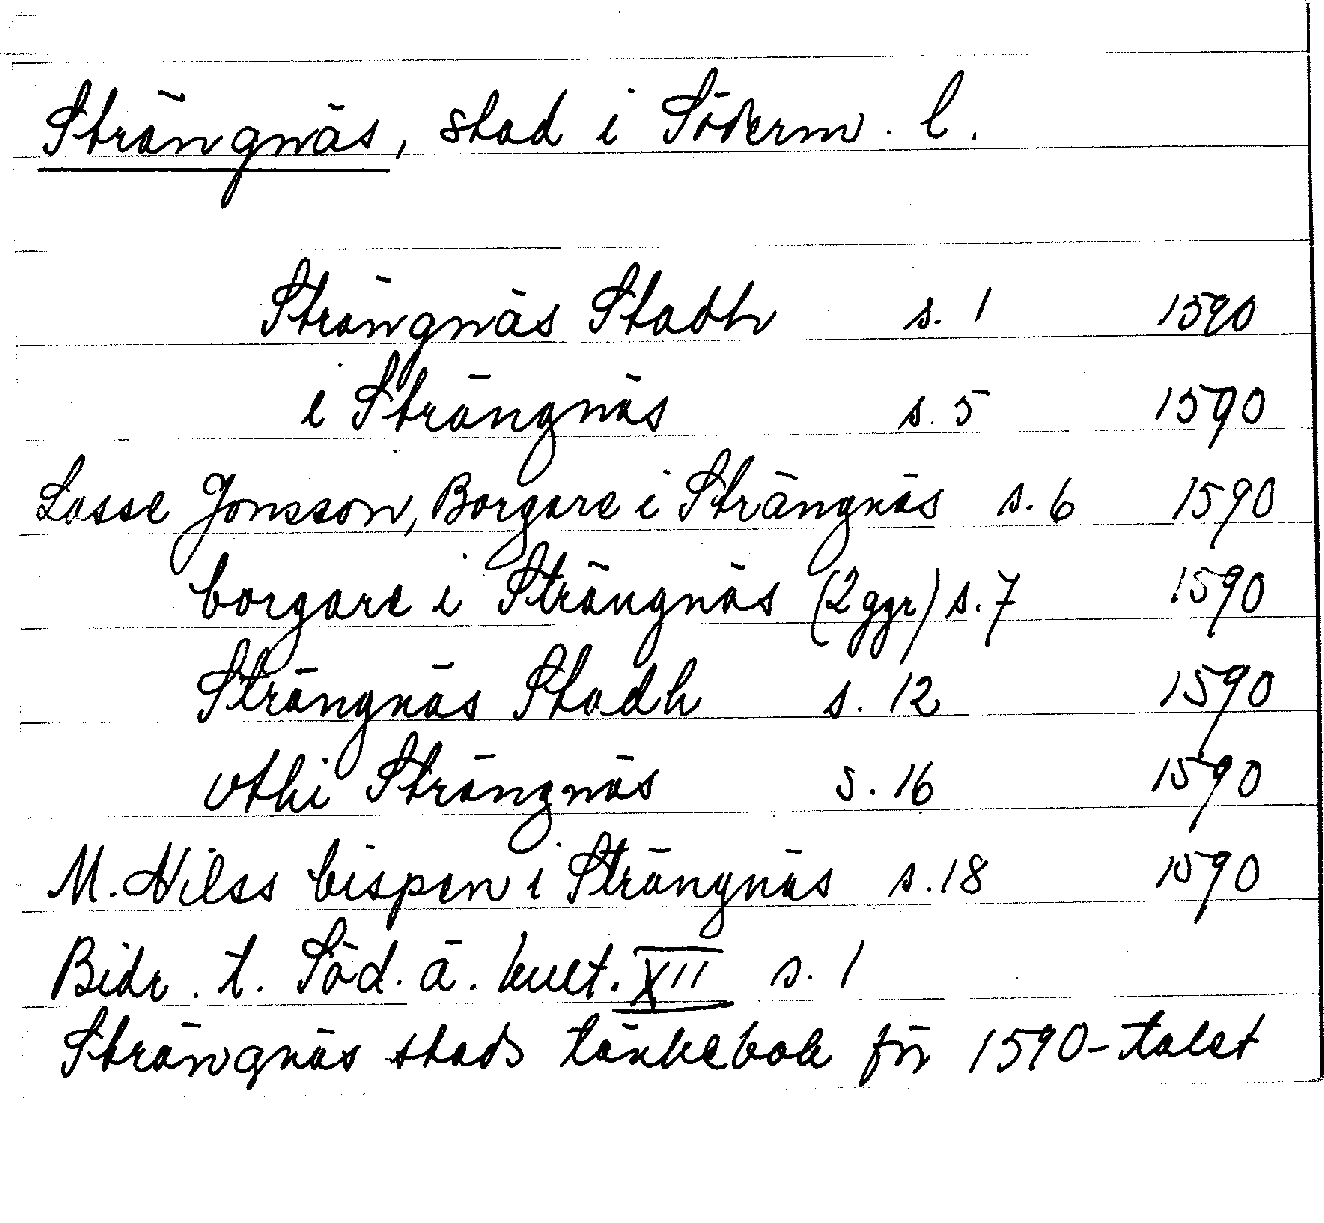 Strängnäs, stad i Söderm. l.
Strängnäs Stadh s. 1 1590
i Strängnäs s. 5 1590
Lasse Jonsson, Borgare i Strängnäs s. 6 1590
borgare i Strängnäs (2 ggr) s. 7 1590
Strängnäs Stadh s. 12 1590
vthi Strängnäs s. 16 1590
M. Nilss bispen i Strängnäs s. 18 1590
Bidr. t. Söd. ä. kult. XII s. 1
Strängnäs stads tänkebok för 1590-talet